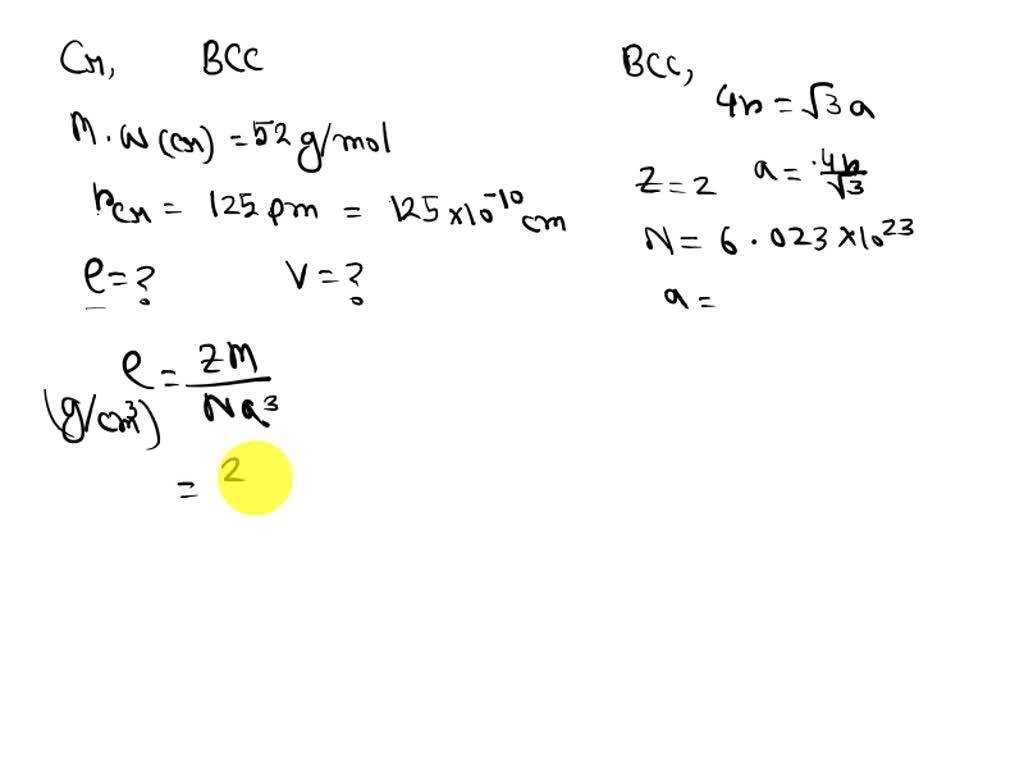 Cr, BCC
M.W(Cr) = 52 g/mol
rCr = 125 pm = 125 × 10⁻¹⁰ cm
ρ = ? V = ?
ρ = ZM / Na³
(g/cm³)
= 2
BCC,
4r = √3 a
Z = 2 a = 4r/√3
N = 6.023 × 10²³
a =